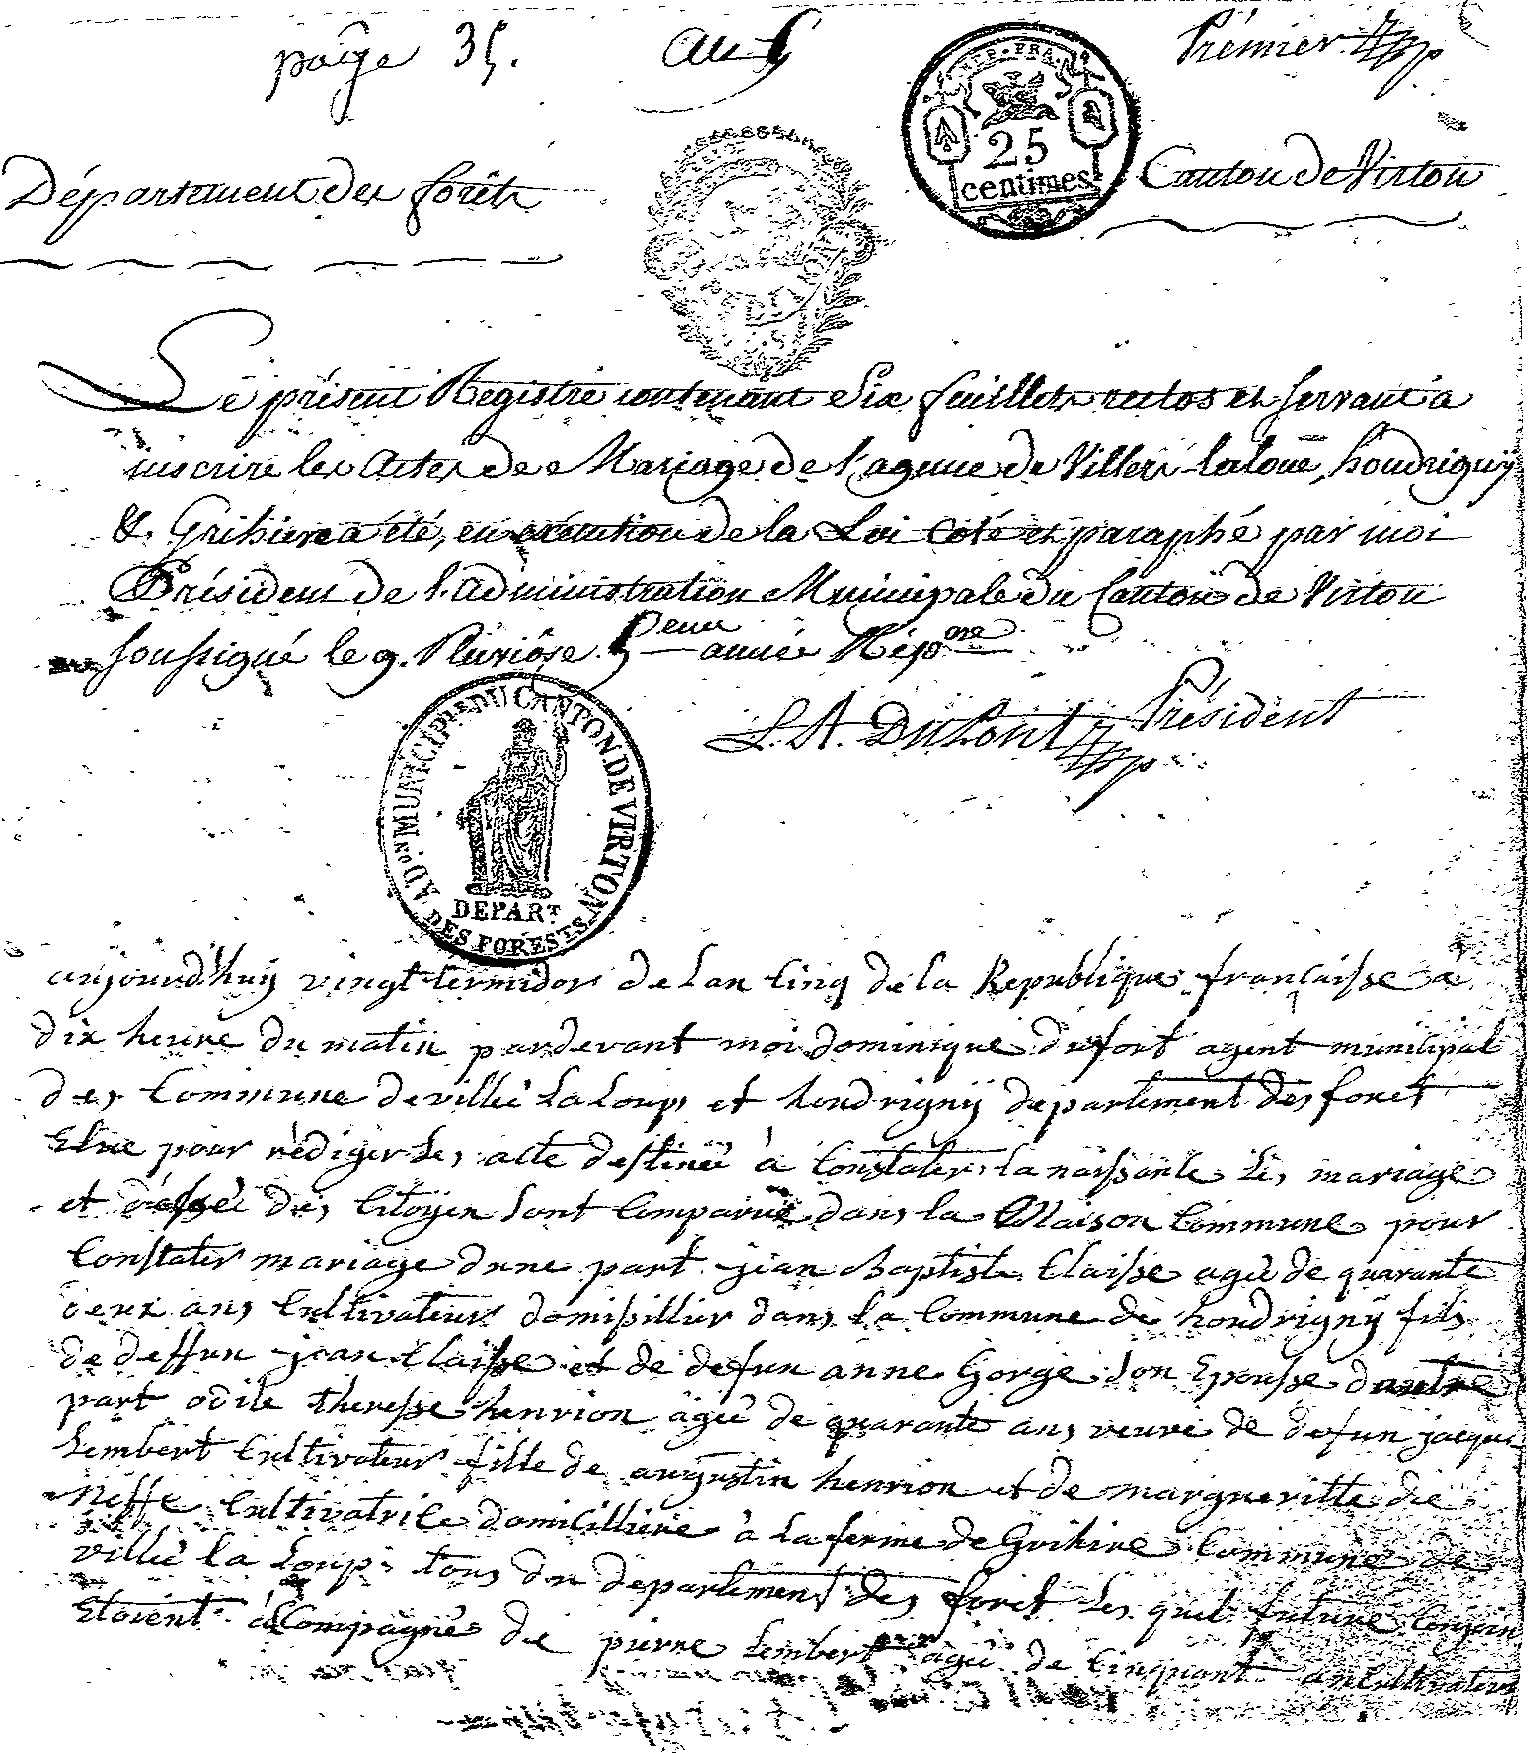 page 35. an 5 Prémier
REP. FRA.
25
centimes
Département des forêts Canton de Virton
Le présent Registre contenant Six feuillets rectos et servant à
inscrire les Actes de Mariage de l'agence de Villers-laloue, houdrigny
&. Grihiere a été, en exécution de la Loi coté et paraphé par moi
Président de l'administration Municipale du Canton de Virton
soussigné le 9. Pluviôse 5eme année Répore
L. A. Président
ADon. MUNICIPLE DU CANTON DE VIRTON
DEPART
DES FORESTS
aujourd'huy vingt termidor de Lan Cinq de la Republique francaisse a
dix heure du matin pardevant moi dominique dufort agent municipal
des Commune de ville La Loup et houdrigny departement des foret
Elue pour rédiger Les acte destiné à Constater la naissante Les mariage
et des Citoyen sont Comparue dans la Maison Commune pour
Constater mariage dune part jean Baptiste Claisse agé de quarante
deux ans Cultivateur domisillier dans la Commune de houdrigny fils
de deffun jean Claisse et de defun anne Gorge son Epousse dautre
part odile theresse henrion agée de quarante ans veuve de defun jacque
Lembert Cultivateur fille de augustin henrion et de margueritte de
Neffe Cultivatrice domicilliere à La ferme de Grihire Commune de
ville la Loup tous du departement des foret Les quel future Conjoin
Etoient acCompagné de pierre Lembert agé de Cinquant an Cultivateur